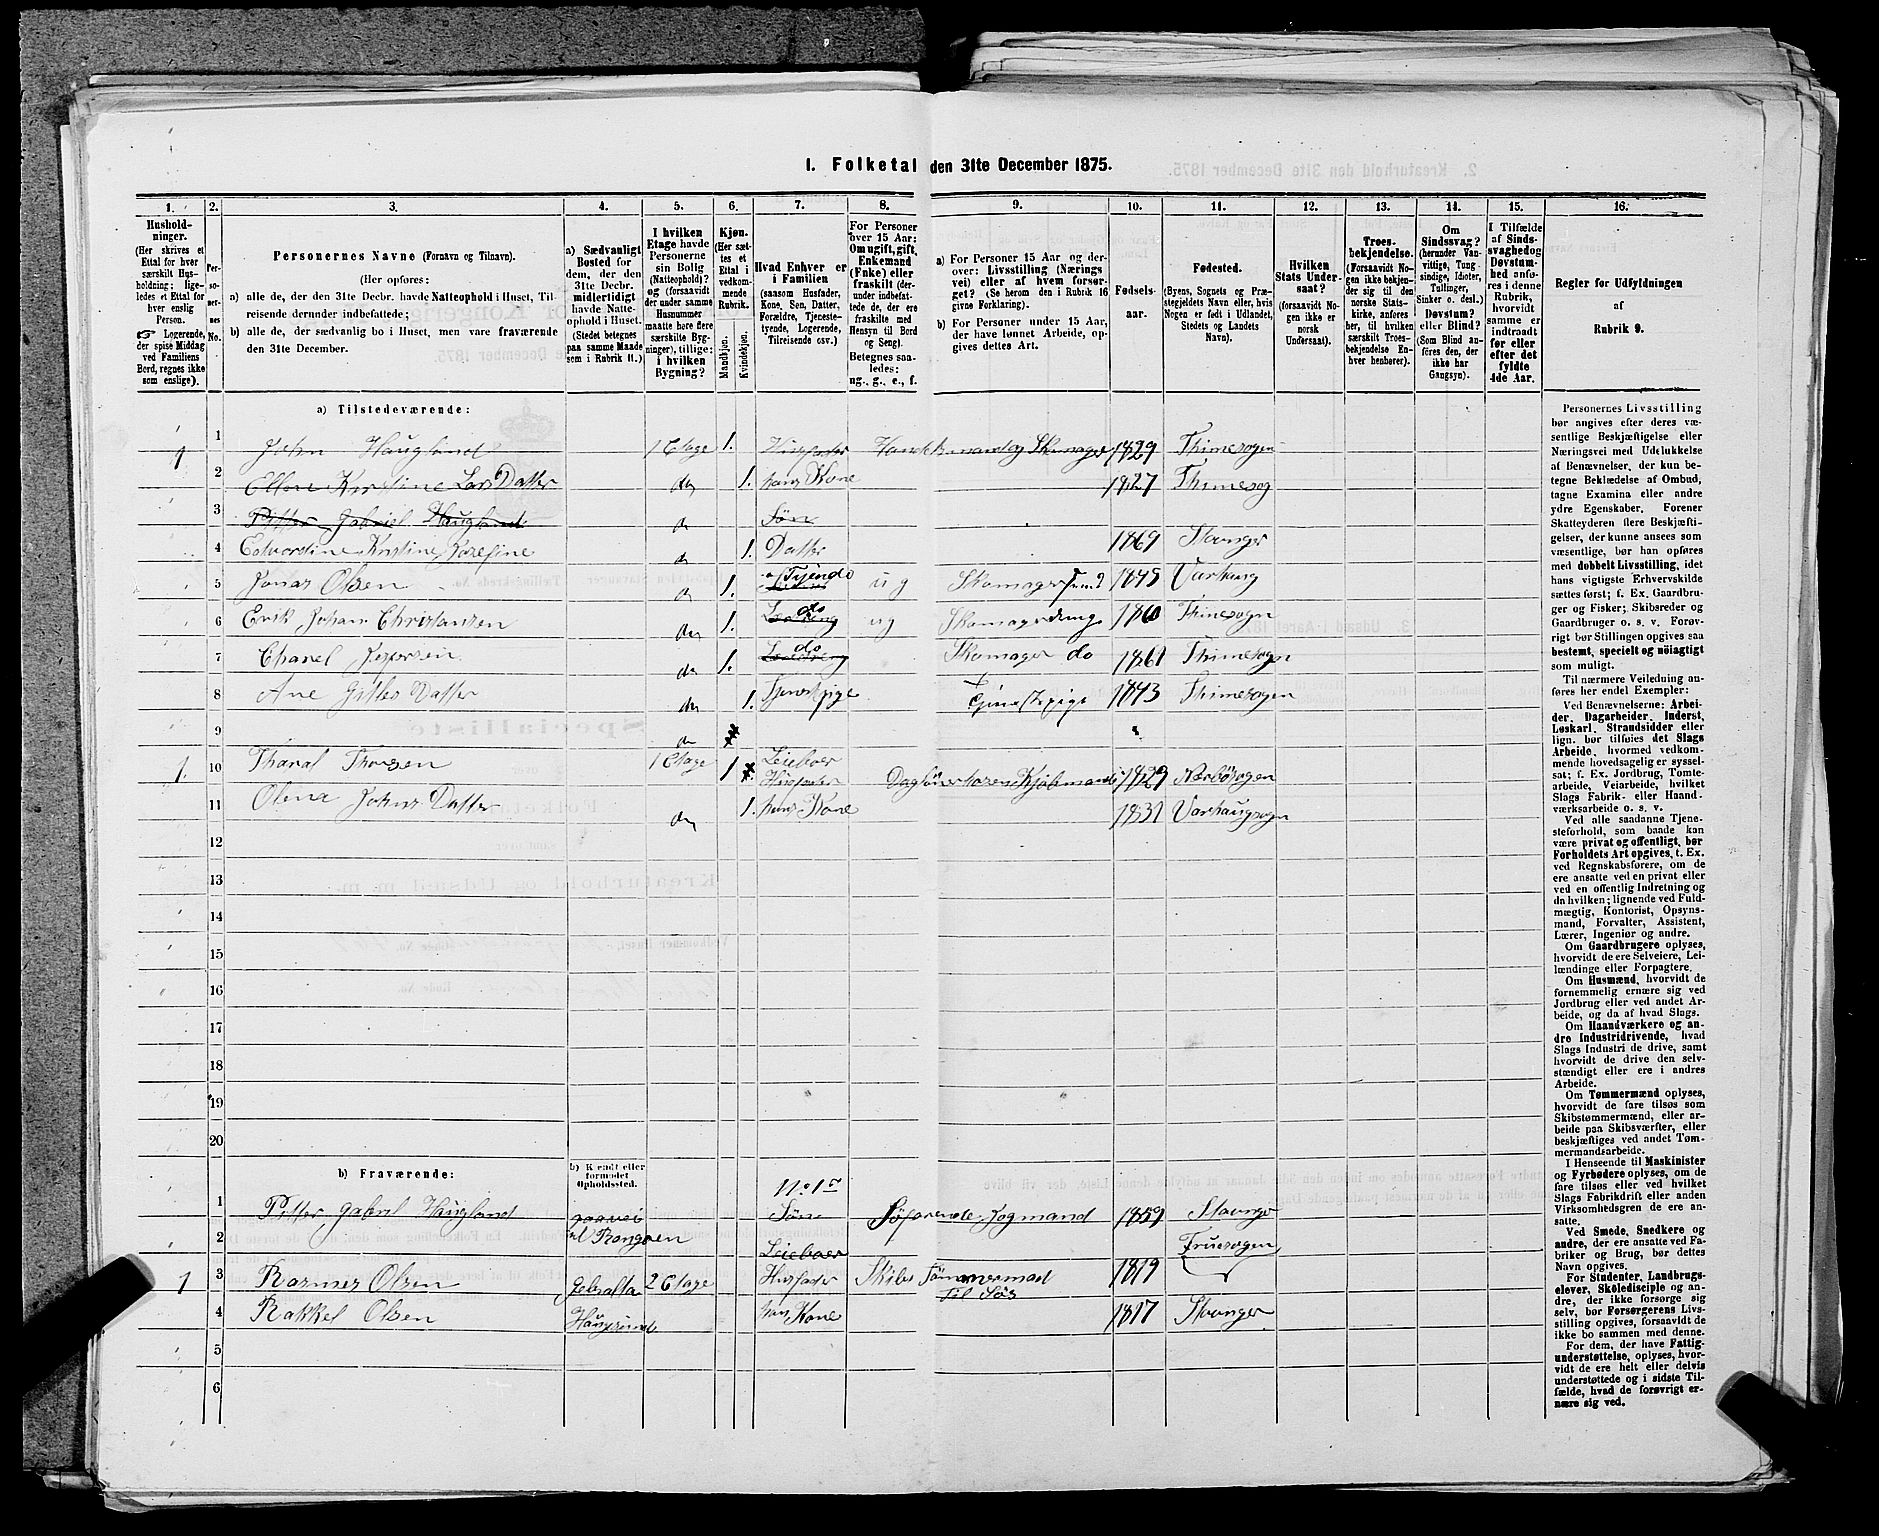 I. Folketal den 31te December 1875.
1. 2. 3. 4. 5. 6. 7. 8. 9. 10. 11. 12. 13. 14. 15. 16.
Husholdninger.
(Her skrives et
Ettal for hver
særskilt Husholdning; ligeledes
et Ettal for
hver enslig
Person.
Logerende,
der spise Middag
ved Familiens
Bord, regnes ikke
som enslige).
Personernes No.
Personernes Navne (Fornavn og Tilnavn).
(Her opføres:
a) alle de, der den 31te Decbr. havde Natteophold i Huset, Tilreisende derunder indbefattede;
b) alle de, der sædvanlig bo i Huset, men vare fraværende
den 31te December.
a) Sædvanligt
Bosted for
dem, der den
31te Decbr.
midlertidigt
havde Natteophold i Huset.
(Stedet betegnes
paa samme Maade
som i Rubrik 11.)
I hvilken
Etage havde
Personerne
sin Bolig
(Natteophold)?
og (forsaavidt
der under samme
Husnummer
maatte høre flere
særskilte Bygninger), tillige:
i hvilken
Bygning?
Kjøn.
(Her sættes et
Ettal i
vedkommende
Rubrik.
Mandkjøn.
Kvindekjøn.
Hvad Enhver er
i Familien
(saasom Husfader,
Kone, Søn, Datter,
Forældre, Tjenestetyende, Logerende,
Tilreisende osv.)
For Personer
over 15 Aar:
Om ugift, gift,
Enkemand
(Enke) eller
fraskilt (derunder indbefattede de, der ere
fraskilte med
Hensyn til Bord
og Seng).
Betegnes saaledes:
ug., g., e., f.
a) For Personer 15 Aar og derover: Livsstilling (Næringsvei) eller af hvem forsørget? (Se herom den i Rubrik 16
givne Forklaring).
b) For Personer under 15 Aar,
der have lønnet Arbeide, opgives dettes Art.
Fødselsaar.
Fødested.
(Byens, Sognets og Præstegjeldets Navn eller, hvis
Nogen er født i Udlandet,
Stedets og Landets
Navn).
Hvilken
Stats Undersaat?
(forsaavidt Nogen ikke er
norsk
Undersaat).
Troesbekjendelse.
(Forsaavidt Nogen ikke bekjender sig til den
norske Statskirke, anføres
her, til hvilken
særskilt Troesbekjendelse Enhver henhører).
Om
Sindssvag?
(herunder Vanvittige, Tungsindige, Idioter,
Tullinger,
Sinker o. desl.)
Døvstum?
eller Blind?
(Som Blind anføres den, der
ikke har
Gangsyn).
I Tilfælde
af Sindssvaghed og
Døvstumhed anføres i denne
Rubrik,
hvorvidt
samme er
indtraadt
før eller
efter det
fyldte
4de Aar.
Regler for Udfyldningen
af
Rubrik 9.
a) Tilstedeværende:
1 1 John Haugland 1 Etage 1. Husfader Handelsmand og Skomager 1829 Thimesogn
2 Ellen Kirstine Lars Datter do 1. hans Kone 1827 Thimesog
3 Pitter Gabriel Haugland do Søn
4 Edvardine Kristine Josefine do 1. Datter 1869 Stavnger
5 Jonas Olsen do 1. Tjende ug Skomager 1845 Varhaug
6 Erik Johan Christansen do 1. do ug Skomagerdreng 1860 Thimesogn
7 Chanel Jespersen do 1. do Skomager do 1861 Thimesogn
8 Ane Gitles Datter do 1. Tjenestpige Tjenestepige 1843 Thimesogen
9 do
1. 10 Tharal Thorsen 1 Etage 1 Leieboer Husfader 1829 Nærbösogen
11 Olena Johns Datter do 1. hans Kone 1831 Varhaugsogn
12
13
14
15
16
17
18
19
20
b) Fraværende:
b) Kjendt eller
formodet
Opholdssted.
1 Pitter Gabriel Haugland paavei Søn Söfarende Jogmand 1859 Stavnger
2 Leieboer Fruesogen
1 3 Rasmus Olsen Gebralta 2 Etage Husfader Skibs Tömmermad til Søs 1819
4 Rakkel Olsen Haugesund hans Kone 1817 Stavnger
5
6
Personernes Livsstilling
bør angives efter deres væsentlige Beskjæftigelse eller
Næringsvei med Udelukkelse
af Benævnelser, der kun betegne Beklædelse af Ombud,
tagne Examina eller andre
ydre Egenskaber. Forener
Skatteyderen flere Beskjæftigelser, der kunne ansees som
væsentlige, bør han opføres
med dobbelt Livsstilling, idet
hans vigtigste Erhvervskilde
sættes først; f. Ex. Gaardbruger og Fisker; Skibsreder og
Gaardbruger o. s. v. Forøvrigt bør Stillingen opgives saa
bestemt, specielt og nøiagtigt
som muligt.
Til nærmere Veiledning anføres her endel Exempler:
Ved Benævnelserne: Arbeider, Dagarbeider, Inderst,
Løskarl, Strandsidder eller
lign. bør tilføies det Slags
Arbeide, hvormed vedkommende hovedsagelig er sysselsat; f. Ex. Jordbrug, Tomtearbeide, Veiarbeide, hvilket
Slags Fabrik- eller Haandværksarbeide o. s. v.
Ved alle saadanne Tjenesteforhold, som baade kan
være privat og offentligt, bør
Forholdets Art opgives, t. Ex.
ved Regnskabsførere, om de
ere ansatte ved en privat eller
ved en offentlig Indretning og
da hvilken; lignende ved Fuldmægtig, Kontorist, Opsynsmand, Forvalter, Assistent,
Lærer, Ingeniør og andre.
Om Gaardbrugere oplyses,
hvorvidt de ere Selveiere, Leilændinge eller Forpagtere.
Om Husmænd, hvorvidt de
fornemmelig ernære sig ved
Jordbrug eller ved andet Arbeide, og da af hvad Slags.
Om Haandværkere og andre Industridrivende, hvad
Slags Industri de drive, samt
hvorvidt de drive den selvstændigt eller ere i andres
Arbeide.
Om Tømmermænd oplyses,
hvorvidt de fare tilsøs som
Skibstømmermænd, eller arbeide paa Skibsværfter, eller
beskjæftiges ved andet Tømmermandsarbeide.
I Henseende til Maskinister
og Fyrbødere oplyses, om de
fare tilsøs eller ved hvilket
Slags Fabrikdrift eller anden
Virksomhedsgren de ere ansatte.
Ved Smede, Snedkere og
andre, der ere ansatte ved Fabriker og Brug, bør dettes
Navn opgives.
For Studenter, Landbrugselever, Skoledisciple og andre, der ikke forsørge sig
selv, bør Forsørgerens Livsstilling opgives, forsaavidt de
ikke bo sammen med denne.
For dem, der have Fattigunderstøttelse, oplyses, hvorvidt de ere helt eller delvis
understøttede og i sidste Tilfælde, hvad de forøvrigt ernære sig ved.